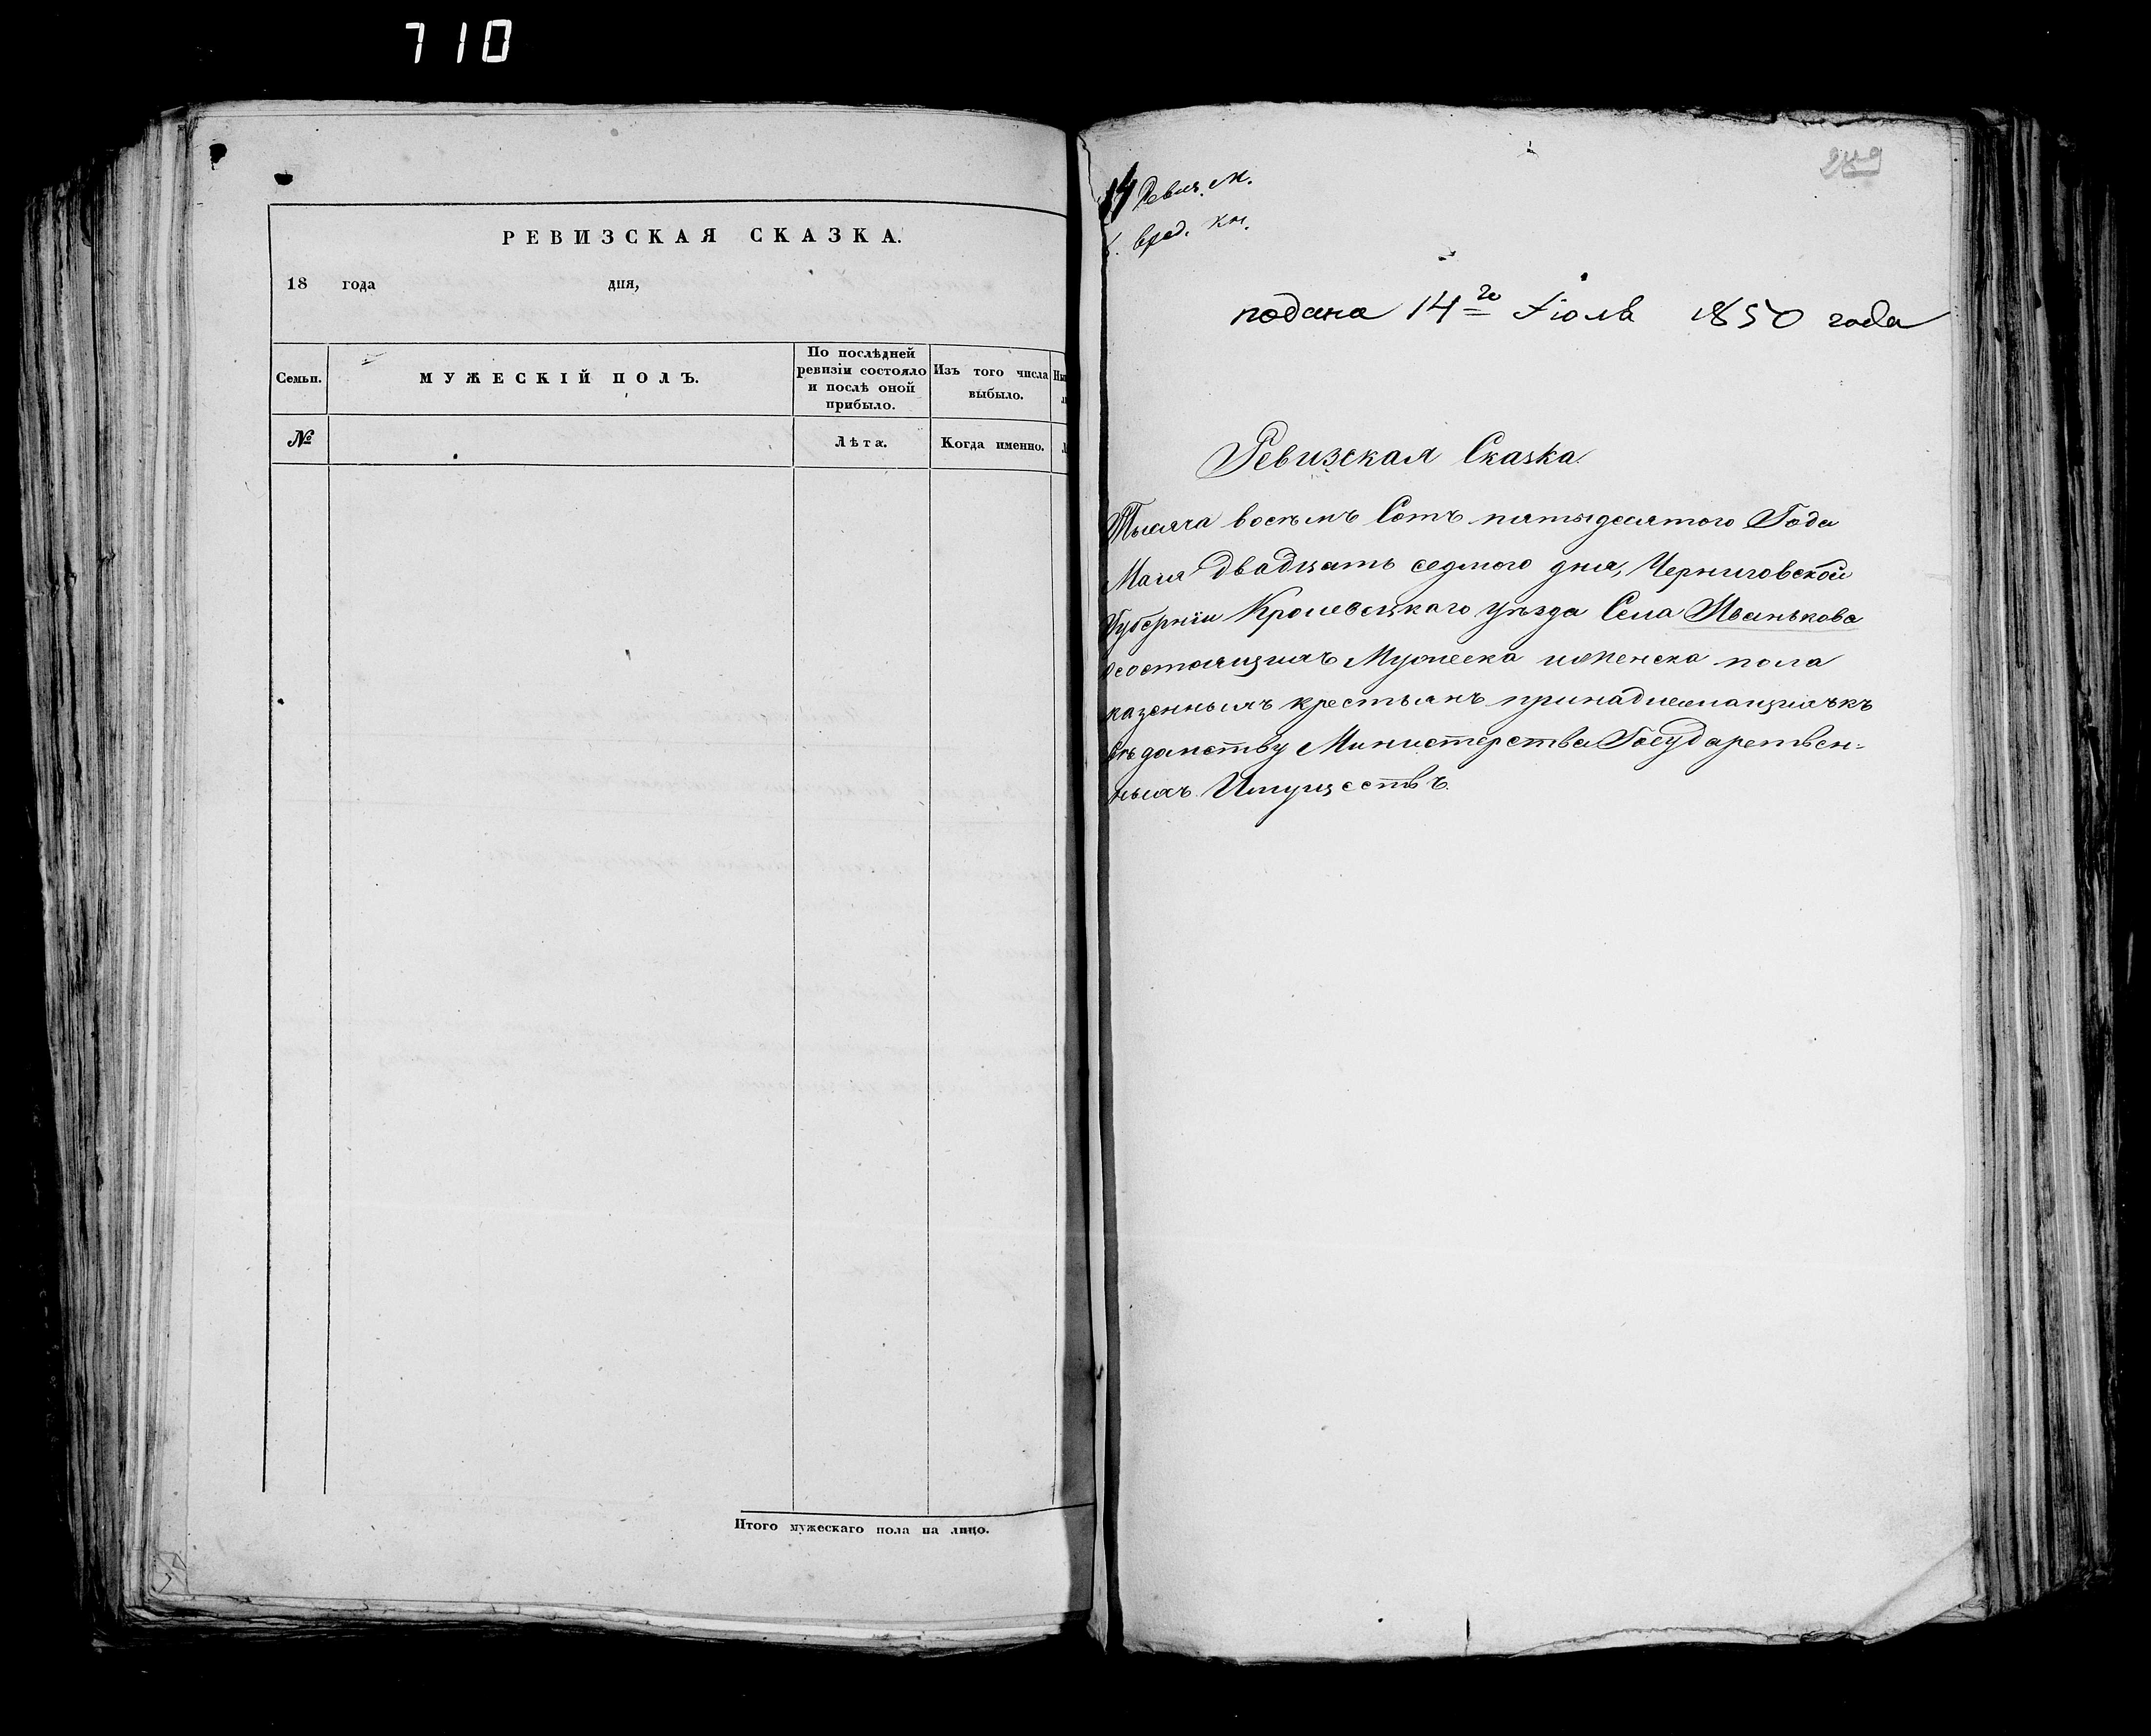 710
РЕВИЗСКАЯ СКАЗКА.
18 года дня,
Семьи.
МУЖЕСКІЙ ПОЛЪ.
По послѣдней
ревизіи состояло
и послѣ оной
прибыло.
Изъ того числа
выбыло.
№
Лѣта.
Когда именно.
Итого мужескаго пола на лицо.
подана 14го Іюля 1850 года
Ревизская Сказка
Тысяча восемъ Сотъ пятьдесятого Года
Мая двадцать седмого дня, Черниговской
Губерніи Кролевецкаго уѣзда Села Иванькова
состоящихъ Мужеска и женска пола
казенныхъ крестьянъ принадлежащихъ къ
вѣдомству Министерства Государствен=
ныхъ Имуществъ.